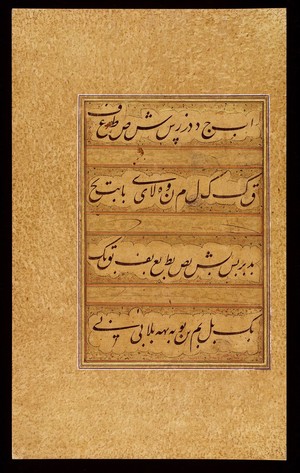 ا ب ج د د ز ر س ش ص ط ع ف
ق ک ک ل م ن و ه لا ی ی با بت بج
بد بر بس بش بص بط بع بف بق بک
بک بل بم بن بو به بهه بلا بی